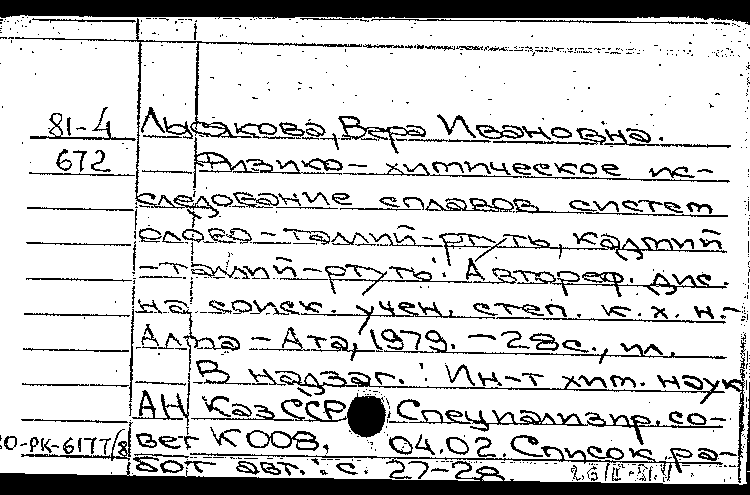 81-4 Лысакова, Вера Ивановна.
672 Физико-химическое ис-
следование сплавов систем
олово-таллий-ртуть, кадмий
-таллий-ртуть: Автореф. дис.
на соиск. учен. степ. к. х. н.-
Алма-Ата, 1979. - 28с., ил.
В надзаг.: Ин-т хим. наук
АН КазССР Специализир. со-
вет К 008. 04.02. Список ра-
бот авт.: с. 27-28.